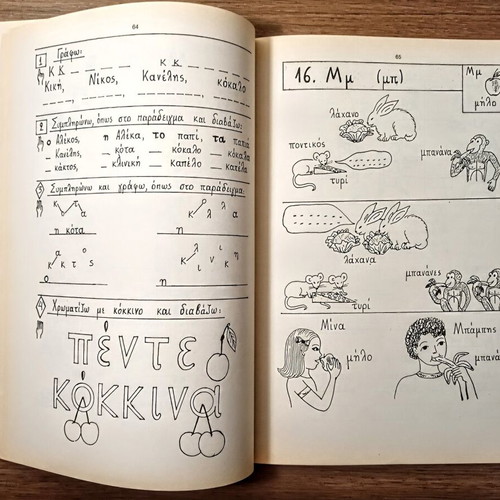 64
1 Γράφω:
Κ Κ κ κ
Κική, Νίκος, Κανέλης, κόκαλο
2 Συμπληρώνω, όπως στο παράδειγμα και διαβάζω:
ο Αλέκος, η Αλέκα, το παπί, τα παπιά
_ Κανέλης, _ κότα _ κόκαλο _ κόκαλα
_ κάκτος, _ κλινική _ καπέλο _ καπέλα
Συμπληρώνω και γράφω, όπως στο παράδειγμα:
κ ό τ α
κ λ λ α
η κότα η
κ α κ τ ο ς
κ λ ι ν ι κ η
ο η
Χρωματίζω με κόκκινο και διαβάζω:
πέντε
κόκκινα
65
16. Μμ (μπ)
Μμ
μήλο
λάχανο
ποντικός
μπανάνα
τυρί
λάχανα
μπανάνες
τυρί
Μίνα
μήλο
Μπάμπης
μπανάνα